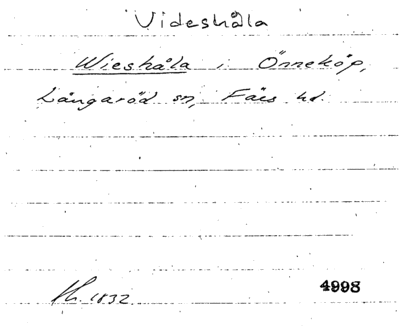 Videshåla
Wieshåla i Önneköp,
Långaröd sn, Färs hd.
1832
4998